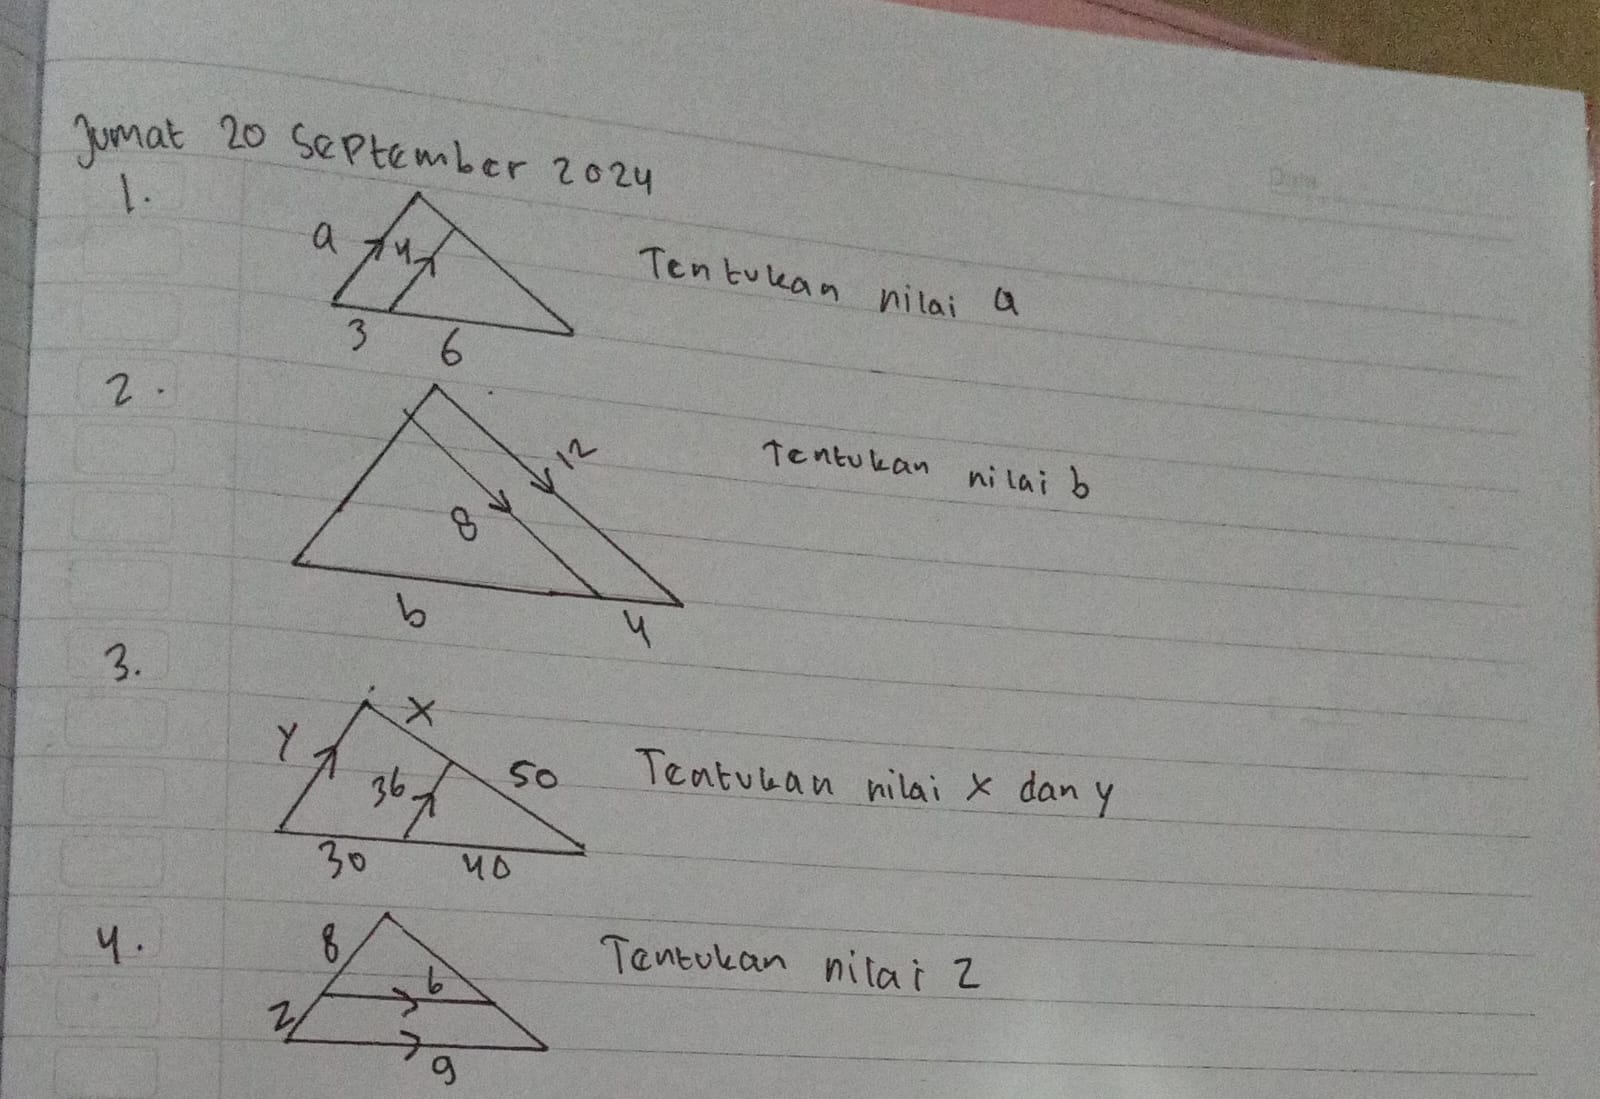 Jumat 20 September 2024
1.
a
4
3
6
Tentukan nilai a
2.
12
8
b
4
Tentukan nilai b
3.
x
y
36
50
30
40
Tentukan nilai x dan y
4.
8
6
z
9
Tentukan nilai z